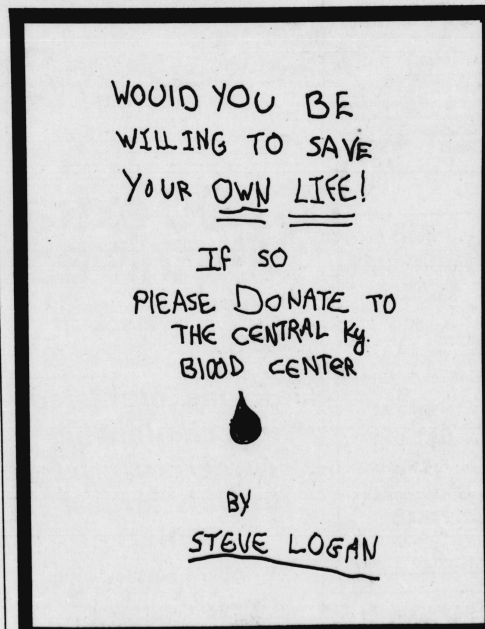 WOULD YOU BE
WILLING TO SAVE
YOUR OWN LIFE!
IF SO
PLEASE DONATE TO
THE CENTRAL Ky.
BLOOD CENTER
BY
STEVE LOGAN